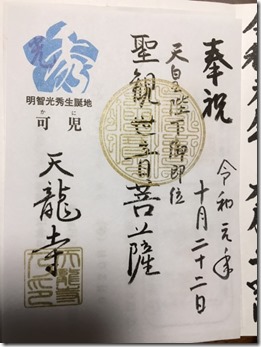 奉祝
天皇陛下御即位
令和元年
十月二十二日
聖観世音菩薩
光秀
明智光秀生誕地
かに
可児
天龍寺